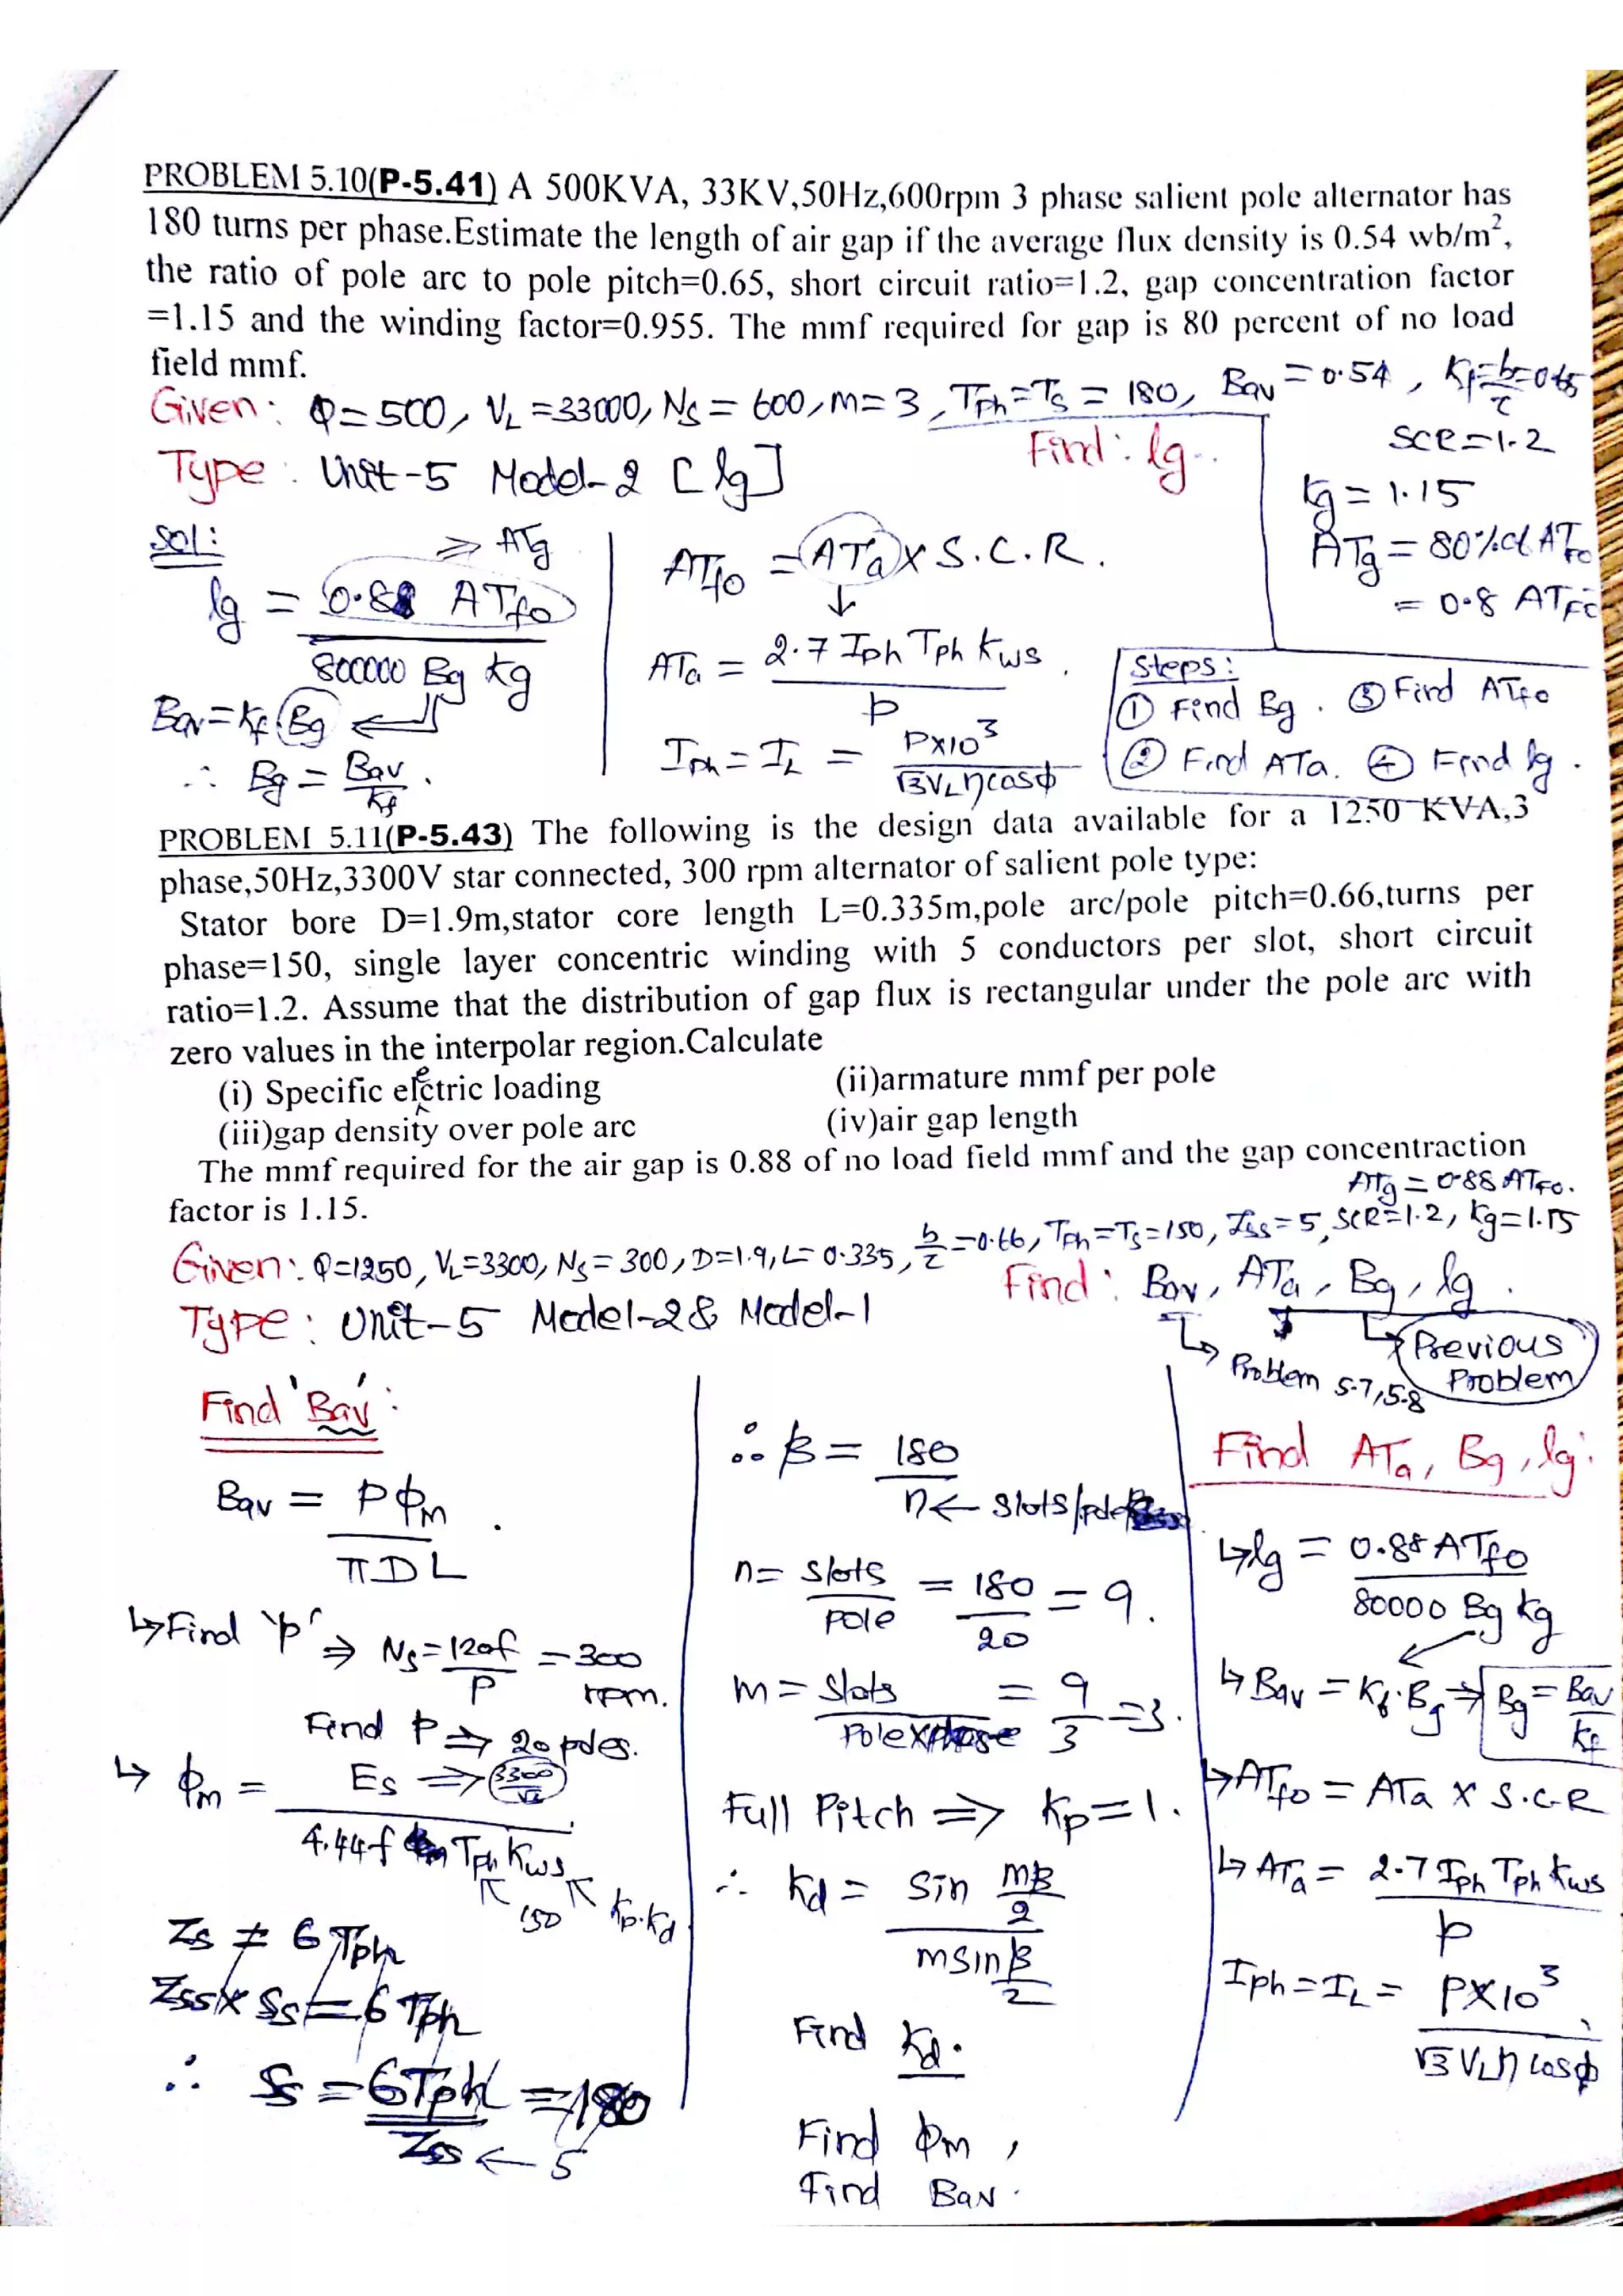 PROBLEM 5.10(P-5.41) A 500KVA, 33KV,50Hz,600rpm 3 phase salient pole alternator has
180 turns per phase.Estimate the length of air gap if the average flux density is 0.54 wb/m²,
the ratio of pole arc to pole pitch=0.65, short circuit ratio=1.2, gap concentration factor
=1.15 and the winding factor=0.955. The mmf required for gap is 80 percent of no load
field mmf.
Given: Q=500, VL=33000, Ns=600, m=3, Tph=Ts=180, Bav=0.54, Kf=b/τ=0.65
SCR=1.2
Kg=1.15
ATg=80% of ATfo
=0.8 ATfo
Type: Unit-5 Model-2 [lg]
Find: lg..
Sol:
⇒ ATg
lg = 0.8 ATfo / 800000 Bg kg
Bav=Kf Bg
∴ Bg = Bav/Kf .
ATfo = ATa x S.C.R.
ATa = 2.7 Iph Tph Kws / p .
Iph=IL = Px10³ / √3VLηcosϕ
Steps:
① Find Bg . ③ Find ATfo
② Find ATa. ④ Find lg .
PROBLEM 5.11(P-5.43) The following is the design data available for a 1250 KVA,3
phase,50Hz,3300V star connected, 300 rpm alternator of salient pole type:
Stator bore D=1.9m,stator core length L=0.335m,pole arc/pole pitch=0.66,turns per
phase=150, single layer concentric winding with 5 conductors per slot, short circuit
ratio=1.2. Assume that the distribution of gap flux is rectangular under the pole arc with
zero values in the interpolar region.Calculate
(i) Specific elctric loading (ii)armature mmf per pole
(iii)gap density over pole arc (iv)air gap length
The mmf required for the air gap is 0.88 of no load field mmf and the gap concentraction
factor is 1.15.
ATg = 0.88 ATfo.
Given: Q=1250, VL=3300, Ns=300, D=1.9, L=0.335, b/τ=0.66, Tph=Ts=150, Zss=5, SCR=1.2, kg=1.15
Type: Unit-5 Model-2 & Model-1
Find: Bav, ATa, Bg, lg .
Problem 5.7, 5.8
Previous Problem
Find 'Bav':
Bav = Pϕm / πDL .
↳Find 'p' ⇒ Ns=120f/P =300 rpm.
Find P ⇒ 20 poles.
↳ ϕm = Es ⇒ 3300/√3 / 4.44f Tph Kws
150 Kp.Kd
Zs = 6 Tph
Zss x Ss = 6 Tph
∴ Ss = 6Tph / Zss = 180
← 5
∴ β = 180 / n ← slots/pole
n= slots/pole = 180/20 = 9.
m= slots/Polexphase = 9/3 =3.
Full Pitch ⇒ Kp=1.
∴ Kd = Sin mβ/2 / m sin β/2
Find Kd.
Find ϕm ,
Find Bav .
Find ATa, Bg, lg:
↳lg = 0.88 ATfo / 80000 Bg kg
↳ Bav = Kf.Bg ⇒ Bg= Bav/Kf
↳ATfo = ATa x S.C.R
↳ ATa = 2.7 Iph Tph Kws / p
Iph=IL= PX10³ / √3 VLη cosϕ